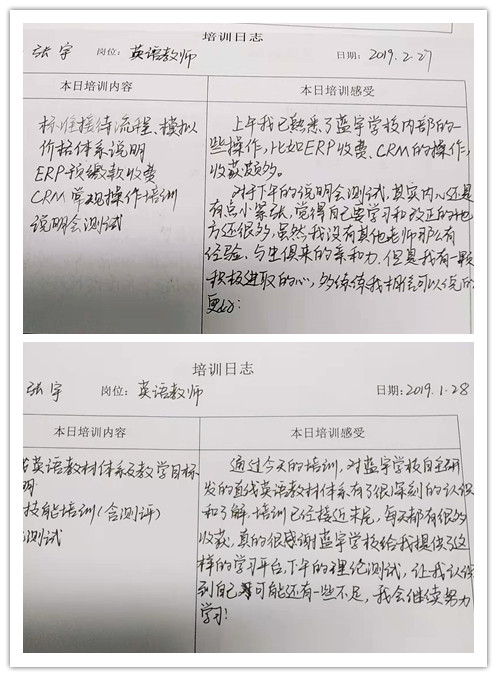 培训日志
张宇 岗位: 英语教师 日期: 2019.2.27
本日培训内容 本日培训感受
标准接待流程、模拟
价格体系说明
ERP预缴款收费
CRM常规操作培训
说明会测试
上午我已熟悉了蓝宇学校内部的一
些操作,比如ERP收费、CRM的操作,
收获颇多。
对于下午的说明会测试,其实内心还是
有点小紧张,觉得自己要学习和改正的地
方还很多,虽然我没有其他老师那么有
经验、与生俱来的亲和力.但是我有一颗
积极进取的心,多练练我相信可以做的
更好!
培训日志
张宇 岗位: 英语教师 日期: 2019.1.28
本日培训内容 本日培训感受
英语教材体系及教学目标
明
技能培训(含测评)
测试
通过今天的培训,对蓝宇学校自主研
发的直线英语教材体系有了很深刻的认识
和了解.培训已经接近末尾,每天都有很多
收获,真的很感谢蓝宇学校给我提供了这
样的学习平台,下午的理论测试,让我认识
到自己可能还有一些不足,我会继续努力
学习!